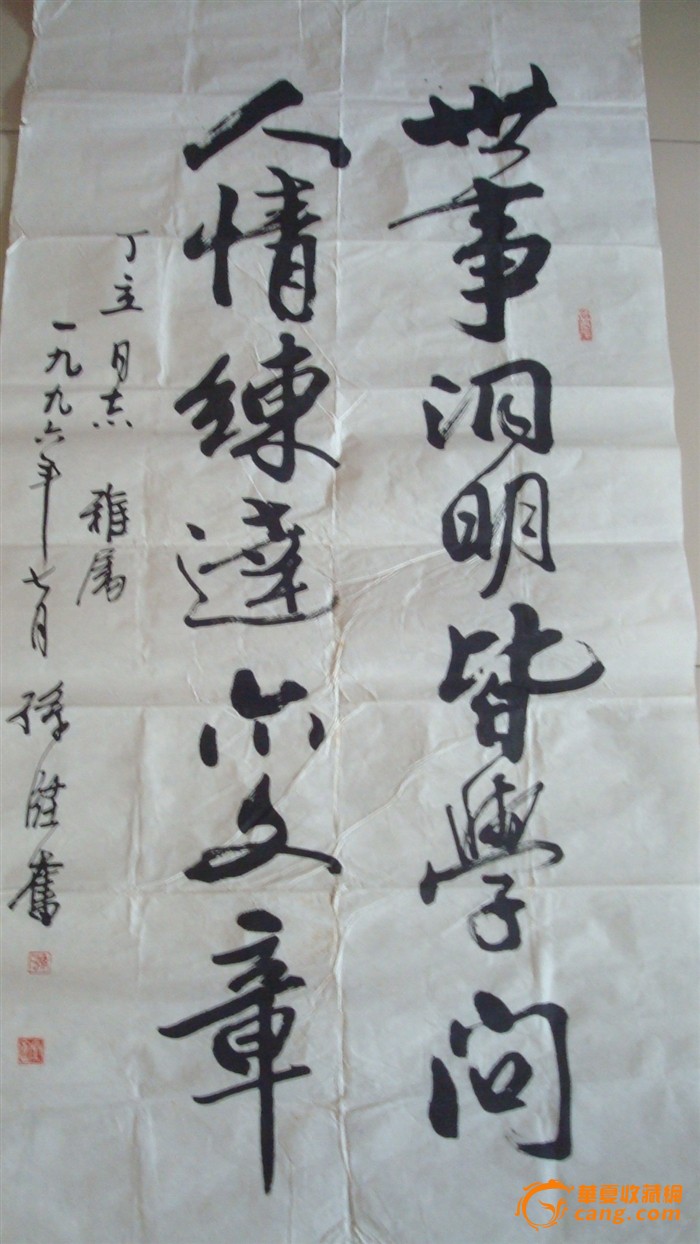 世事洞明皆學問
人情練達亦文章
丁 同志 雅属
一九九六年七月 孫 奮
華夏收藏網
cang.com